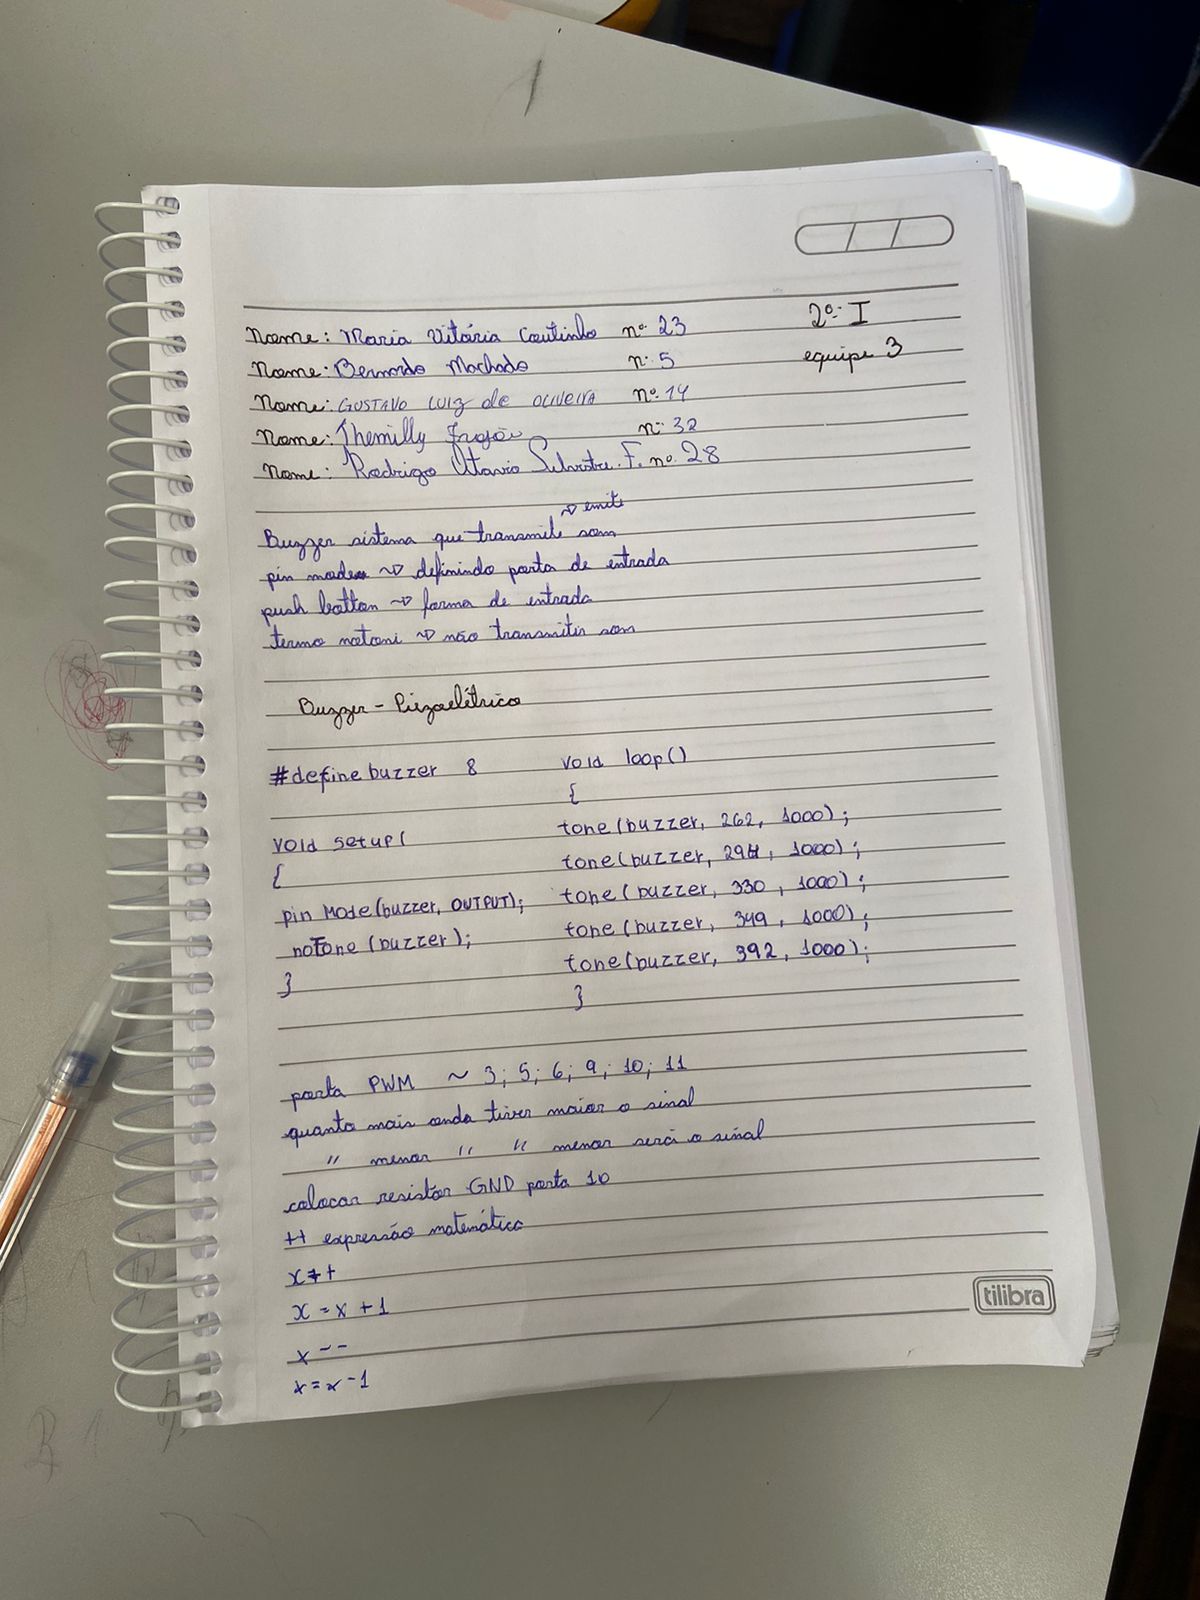 2º- I
Nome: Maria Vitória Coutinho nº 23
equipe 3
Nome: Bernardo Machado nº 5
Nome: GUSTAVO LUIZ de OLIVEIRA nº 14
Nome: Themilly nº 32
Nome: Rodrigo Otavio Silvestre. F. nº 28
→ emite
Buzzer sistema que transmite som
pin mode → definindo porta de entrada
push botton → forma de entrada
termo notoni → não transmitir som
Buzzer - Piezoelétrico
#define buzzer 8
void setup(
{
pin Mode(buzzer, OUTPUT);
noTone (buzzer);
}
void loop()
{
tone(buzzer, 262, 1000);
tone(buzzer, 294, 1000);
tone( buzzer, 330, 1000);
tone(buzzer, 349, 1000);
tone(buzzer, 392, 1000);
}
porta PWM ~ 3; 5; 6; 9; 10; 11
quanto mais onda tiver maior o sinal
" menor " " menor será o sinal
colocar resistor GND porta 10
++ expressão matemática
x++
x = x + 1
x --
x = x - 1
tilibra